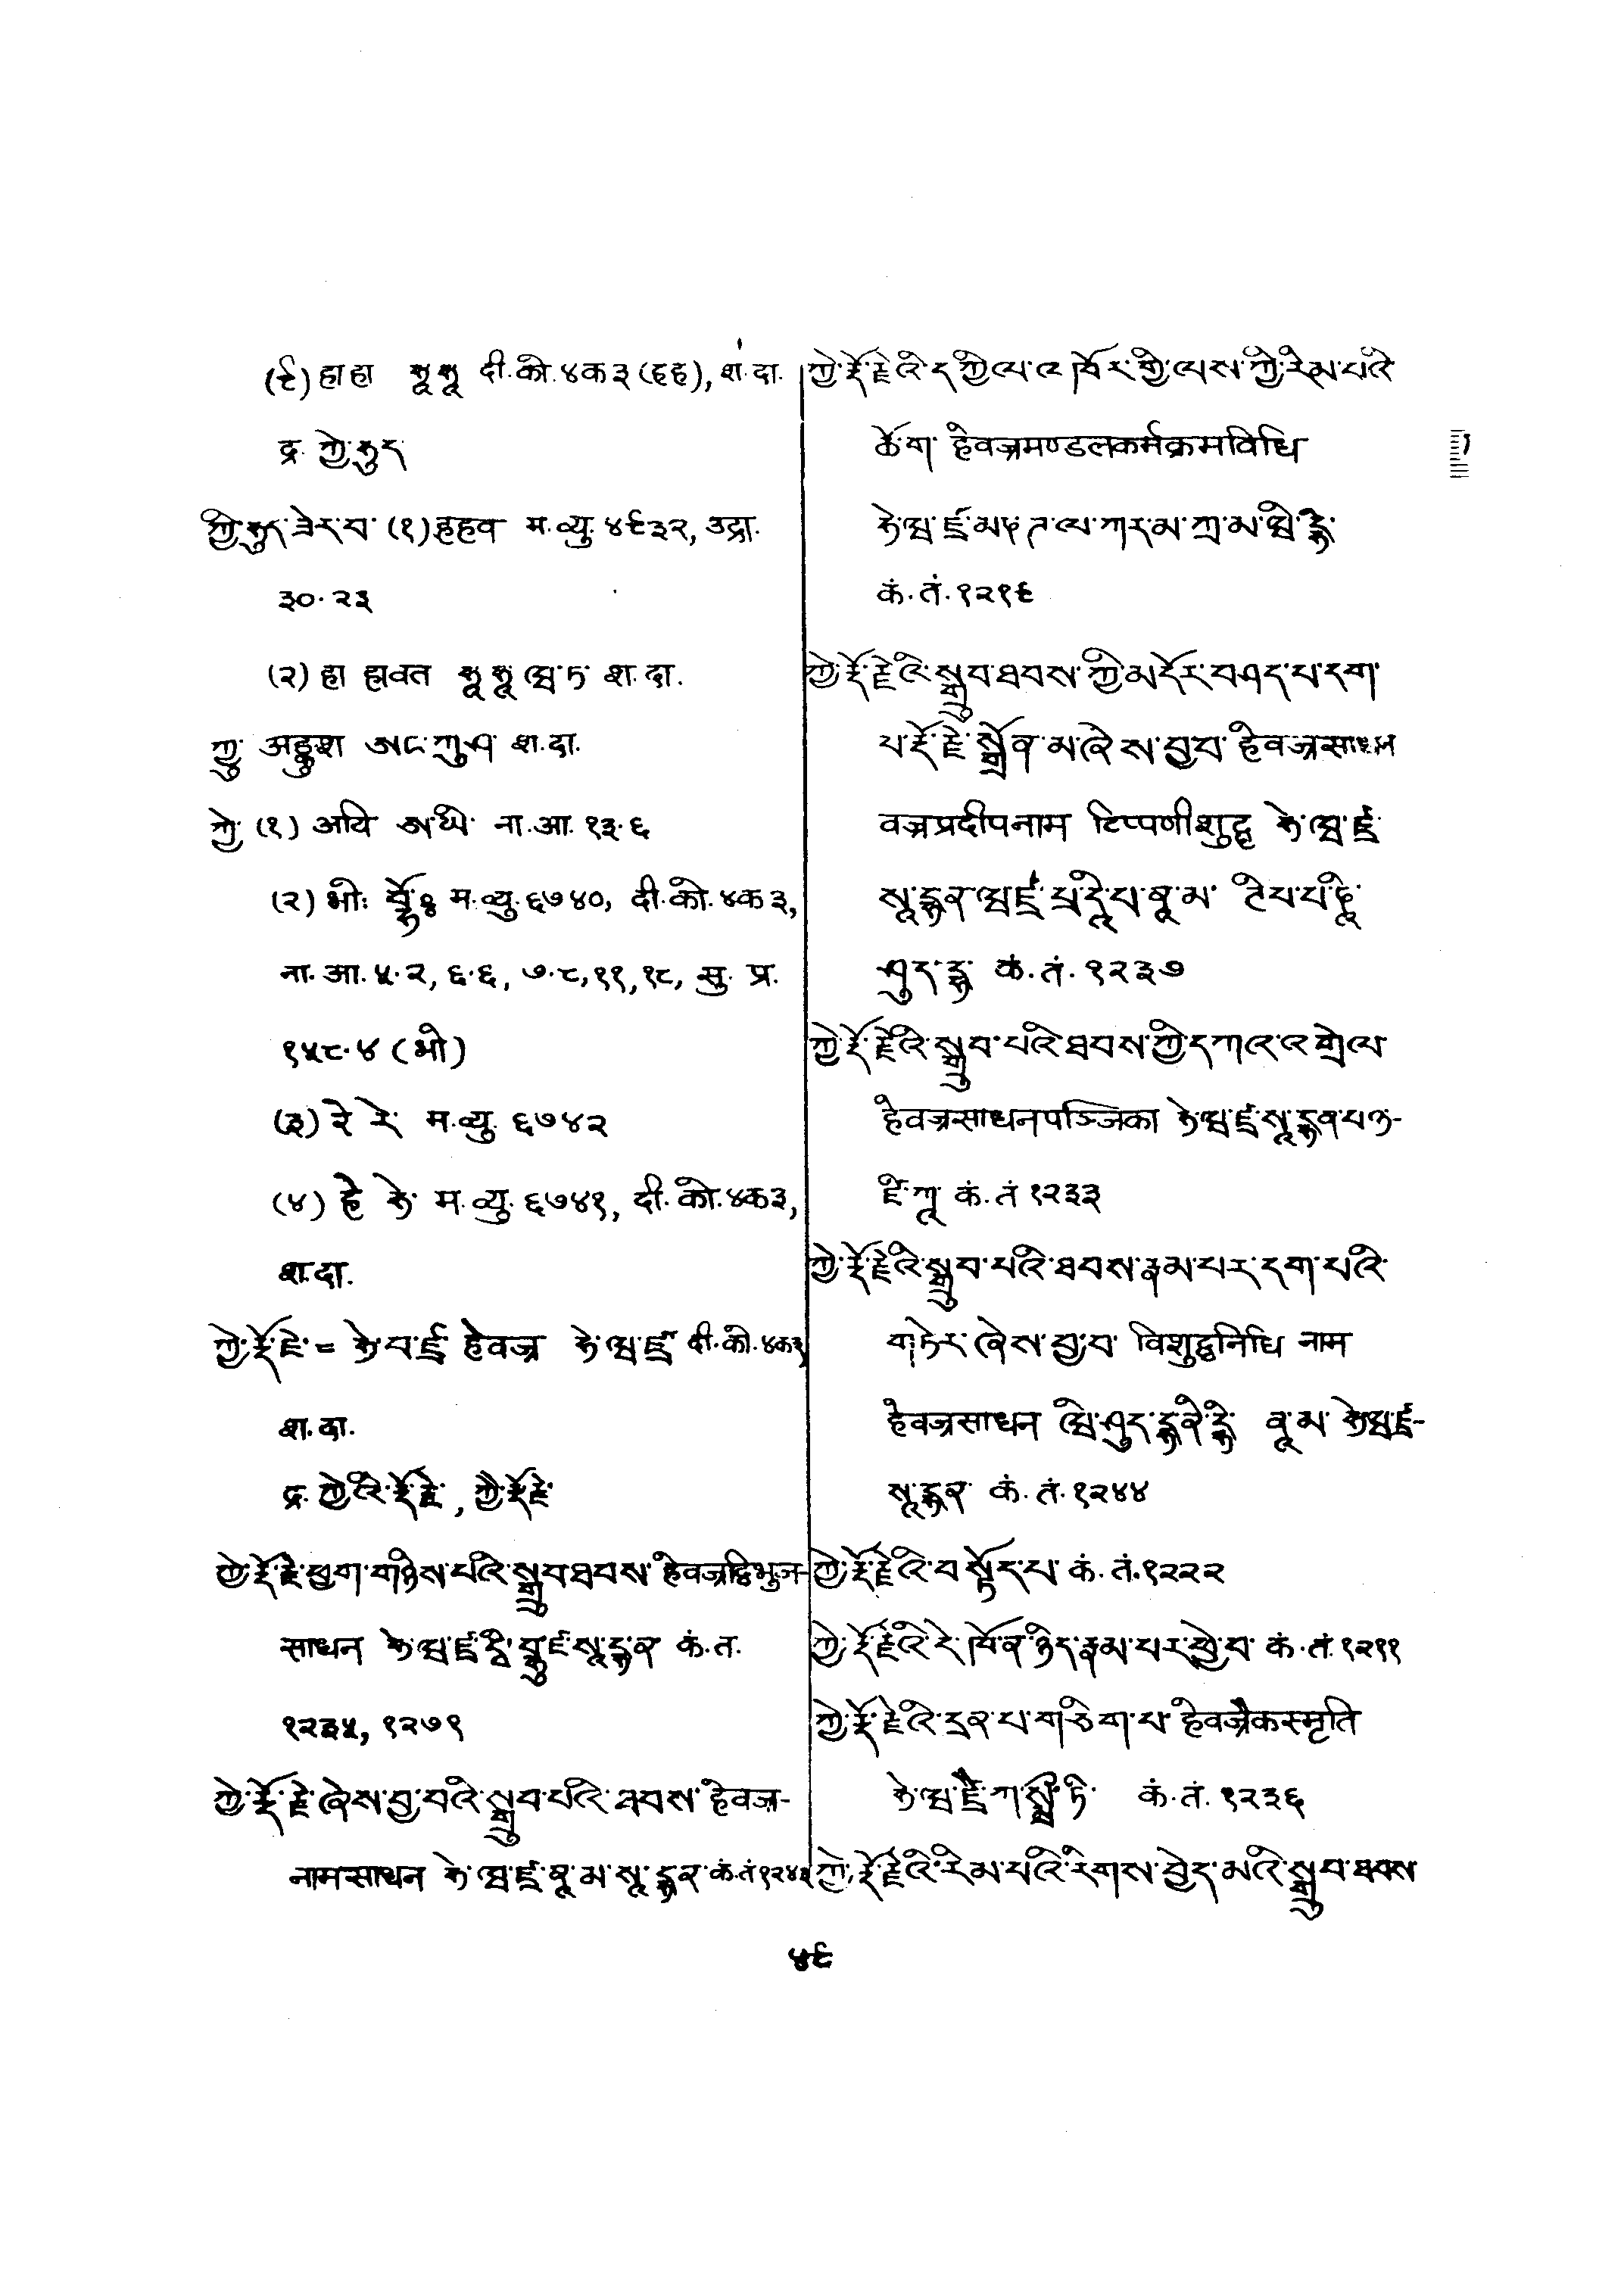 (९) हा हा ཧཱ་ཧཱ དী.को.४क३(हह), श.दा.
द्र. ཀྱེ་ཧུད
ཀྱི་ཧུད་ཟེར་བ་ (१) हहव म.व्यु. ४९३२, उद्रा.
३०.२३
(२) हा हावत ཧཱ་ཧཱ་ཝ་ཏ་ श.दा.
ཀྱུ་ अङ्कुश ཨང་ཀུཤ་ श.दा.
ཀྱེ་ (१) अयि ཨ་ཡི་ ना.आ. १३.६
(२) भोः བྷོཿ म.व्यु. ६७४०, दी.को.४क३,
ना.आ.५.२, ६.६, ७.८, ११, १८, सु. प्र.
१५८.४ (भो)
(३) रे རེ་ म.व्यु. ६७४२
(४) हे ཧེ་ म.व्यु. ६७४१, दी.को.४क३,
श.दा.
ཀྱེ་རྡོ་རྗེ་ = ཧེ་བ་ཛྲ हेवज्र ཧེ་ཝ་ཛྲ दी.को.४क३
श.दा.
द्र. ཀྱེའི་རྡོ་རྗེ་, ཀྱཻ་རྡོ་རྗེ་
ཀྱེ་རྡོ་རྗེ་ཕྱག་གཉིས་པའི་སྒྲུབ་ཐབས་ हेवज्रद्विभुज-
साधन ཧེ་ཝ་ཛྲ་དྭི་བྷུ་ཛ་སཱ་དྷན कं.त.
१२३५, १२७९
ཀྱེ་རྡོ་རྗེ་ཞེས་བྱ་བའི་སྒྲུབ་པའི་ཐབས་ हेवज्र-
नामसाधन ཧེ་ཝ་ཛྲ་ནཱ་མ་སཱ་དྷན་ कं.तं १२४३
ཀྱེ་རྡོ་རྗེའི་དཀྱིལ་འཁོར་གྱི་ལས་ཀྱི་རིམ་པའི་
ཆོ་ག་ हेवज्रमण्डलकर्मक्रमविधि
ཧེ་ཝ་ཛྲ་མཎ་ཌ་ལ་ཀར་མ་ཀྲ་མ་ཝི་དྷི་
कं.तं.१२१९
ཀྱེ་རྡོ་རྗེའི་སྒྲུབ་ཐབས་ཀྱི་མདོར་བཤད་པ་དག་
པ་རྡོ་རྗེ་སྒྲོན་མ་ཞེས་བྱ་བ་ हेवज्रसाधन
वज्रप्रदीपनाम टिप्पणीशुद्ध ཧེ་ཝ་ཛྲ་
སཱ་དྷན་ཝ་ཛྲ་པྲ་དཱི་པ་ནཱ་མ་ ཊིཔ་པ་ཎཱི་
ཤུད་དྷ་ कं.तं.१२३७
ཀྱེ་རྡོ་རྗེའི་སྒྲུབ་པའི་ཐབས་ཀྱི་དཀའ་འགྲེལ་
हेवज्रसाधनपञ्जिका ཧེ་ཝ་ཛྲ་སཱ་དྷན་པཉ-
ཛི་ཀཱ कं.तं १२३३
ཀྱེ་རྡོ་རྗེའི་སྒྲུབ་པའི་ཐབས་རྣམ་པར་དག་པའི་
གཏེར་ཞེས་བྱ་བ་ विशुद्धनिधि नाम
हेवज्रसाधन ཝི་ཤུད་དྷ་ནི་དྷི་ ནཱ་མ་ ཧེ་ཝ་ཛྲ-
སཱ་དྷན་ कं.तं.१२४४
ཀྱེ་རྡོ་རྗེའི་བསྟོད་པ་ कं.तं.१२२२
ཀྱེ་རྡོ་རྗེའི་དེ་ཁོ་ན་ཉིད་རྣམ་པར་ཕྱེ་བ་ कं.तं.१२११
ཀྱེ་རྡོ་རྗེའི་དྲན་པ་གཅིག་པ་ हेवज्रैकस्मृति
ཧེ་ཝ་ཛྲཻ་ཀ་སྨྲྀ་ཏི་ कं.तं.१२३६
ཀྱེ་རྡོ་རྗེའི་རིམ་པའི་རིགས་བྱེད་མའི་སྒྲུབ་ཐབས་
४९